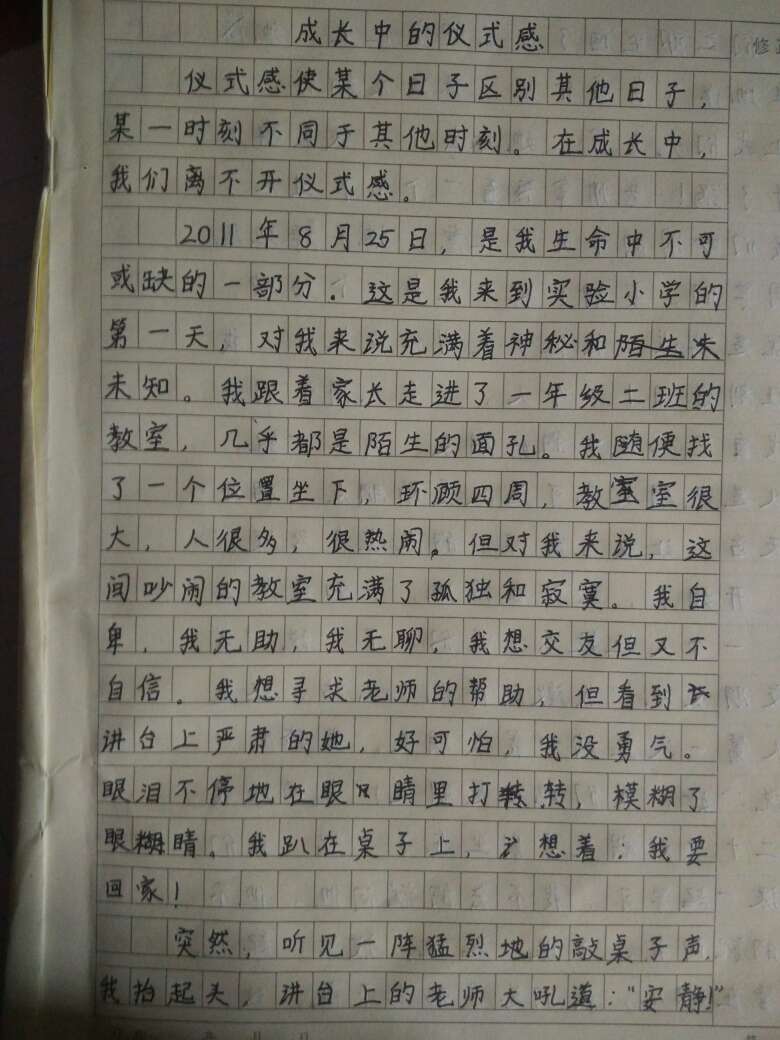 成长中的仪式感
仪式感使某个日子区别其他日子，
某一时刻不同于其他时刻。在成长中，
我们离不开仪式感。
2011年8月25日，是我生命中不可
或缺的一部分。这是我来到实验小学的
第一天，对我来说充满着神秘和陌生未
未知。我跟着家长走进了一年级二班的
教室，几乎都是陌生的面孔。我随便找
了一个位置坐下，环顾四周，教室室很
大，人很多，很热闹。但对我来说，这
间吵闹的教室充满了孤独和寂寞。我自
卑，我无助，我无聊，我想交友但又不
自信。我想寻求老师的帮助，但看到
讲台上严肃的她，好可怕，我没勇气。
眼泪不停地在眼口睛里打转转，模糊了
眼糊睛。我趴在桌子上，想着：我要
回家！
突然，听见一阵猛烈地的敲桌子声，
我抬起头，讲台上的老师大吼道：“安静！”